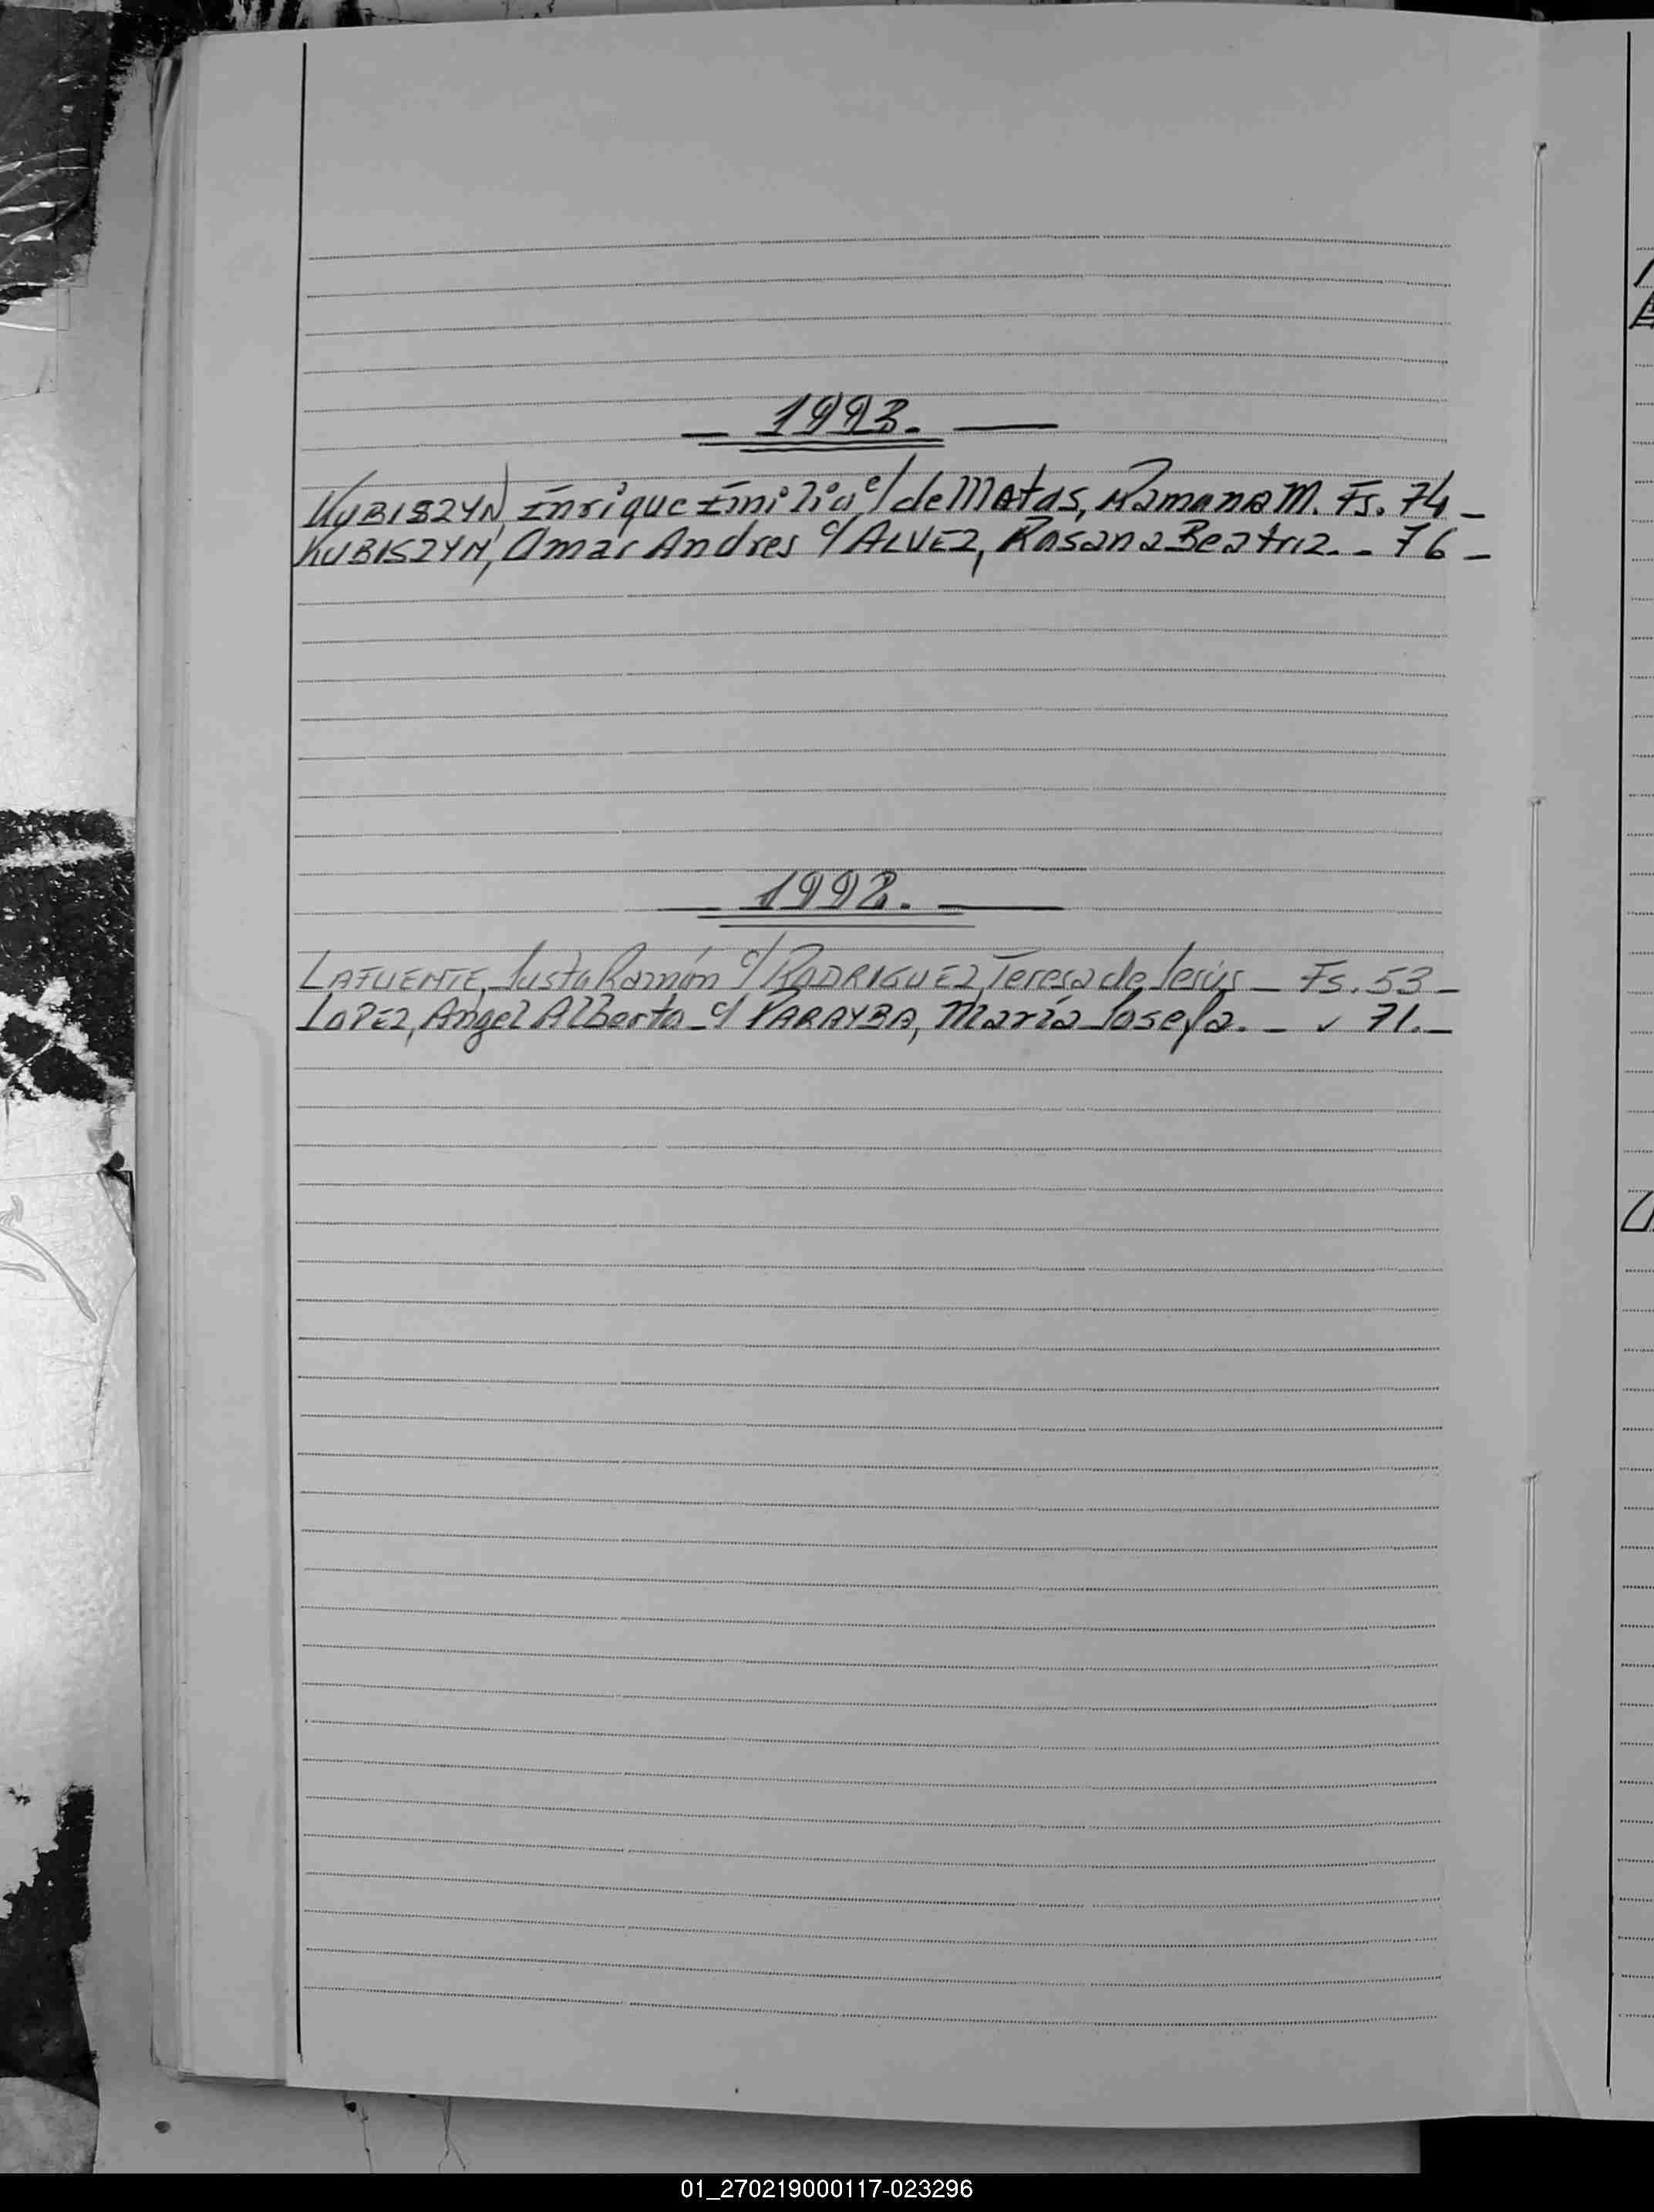 — 1993. —
KUBISZYN, Enrique Emilio c/ de Matos, Ramona M. Fs. 74 —
KUBISZYN, Omar Andres c/ ALVEZ, Rosana Beatriz. - 76 —
— 1992. —
LAFUENTE, Justo Ramón c/ RODRIGUEZ, Teresa de Jesús — Fs. 53 —
LOPEZ, Angel Alberto c/ PARAYBA, María Josefa. - " 71. —
01_270219000117-023296